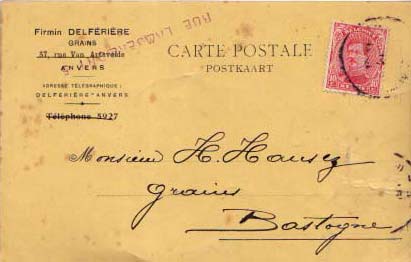 Firmin DELFÉRIÈRE
GRAINS
57, rue Van Artevelde
ANVERS
ADRESSE TÉLÉGRAPHIQUE :
DELFÉRIÈRE-ANVERS
Téléphone 5927
RUE
CARTE POSTALE
POSTKAART
10 10
Monsieur H. Hansez
grains
Bastogne